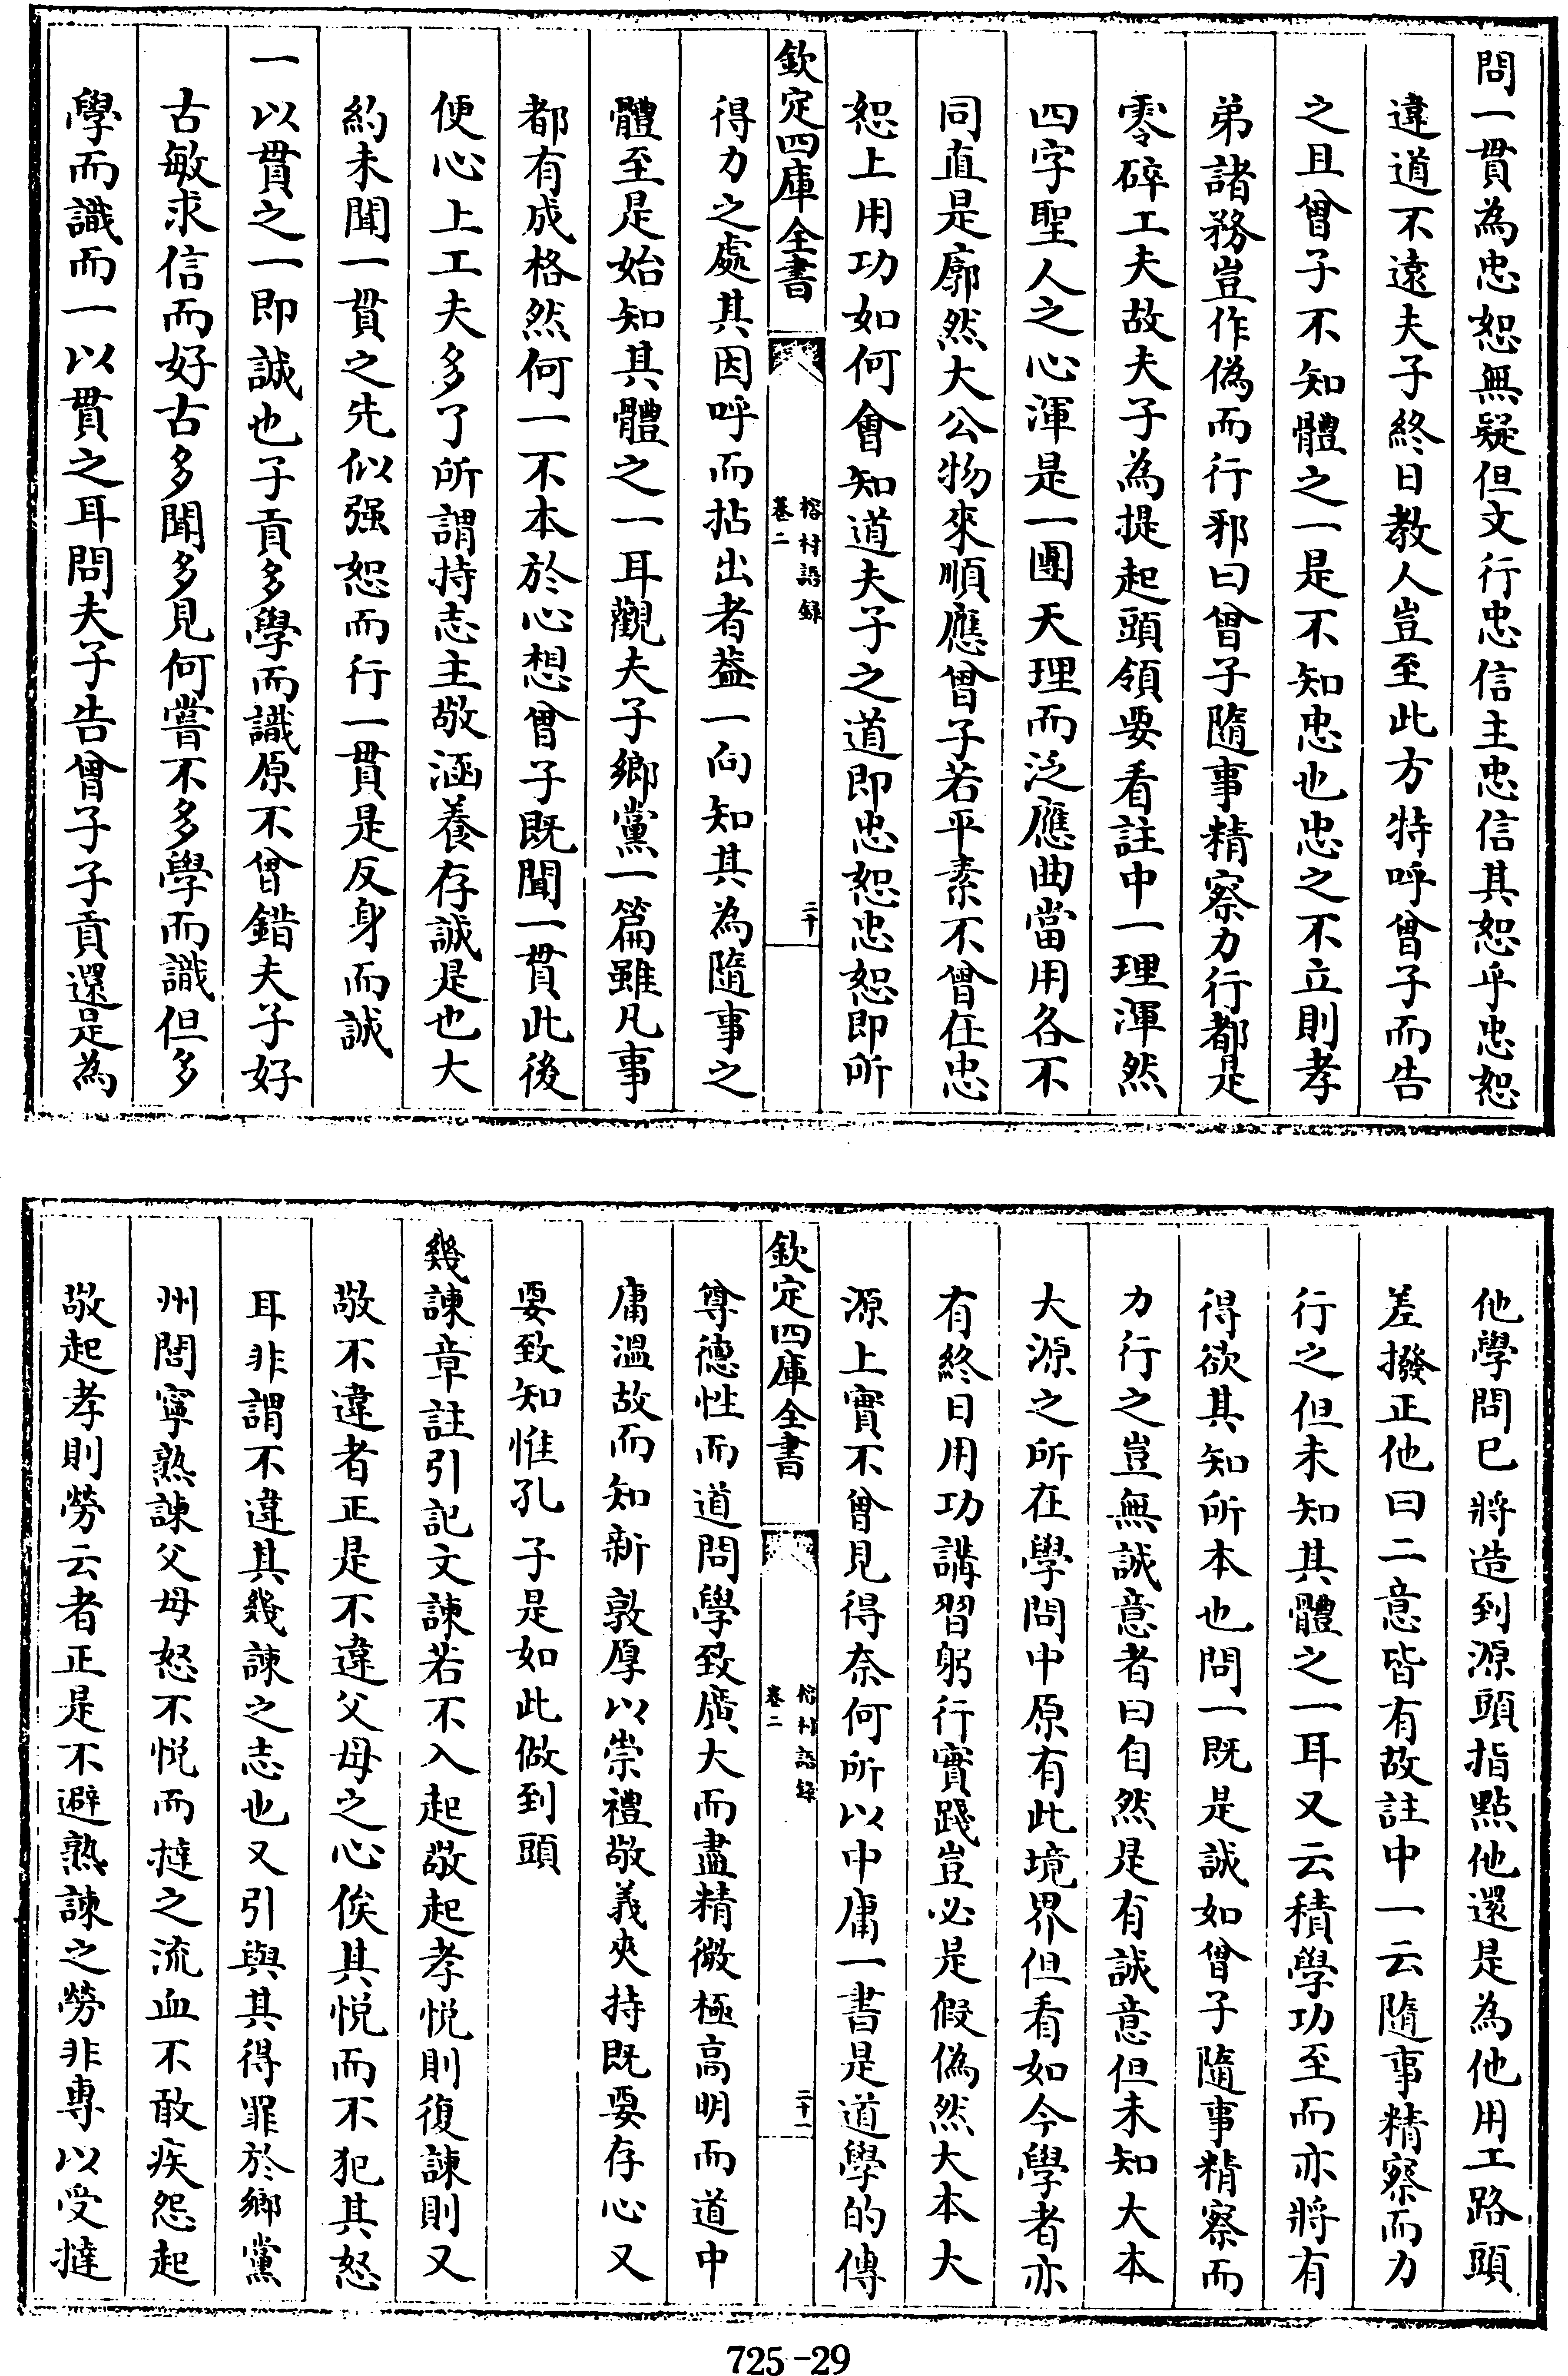 問一貫為忠恕無疑但文行忠信主忠信其恕乎忠恕
違道不遠夫子終日教人豈至此方特呼曾子而告
之且曾子不知體之一是不知忠也忠之不立則孝
弟諸務豈作偽而行邪曰曾子隨事精察力行都是
零碎工夫故夫子為提起頭領要看註中一理渾然
四字聖人之心渾是一團天理而泛應曲當用各不
同直是廓然大公物來順應曾子若平素不曾在忠
恕上用功如何會知道夫子之道即忠恕忠恕即所
欽定四庫全書
榕村語録
卷二
二十
得力之處其因呼而拈出者葢一向知其為隨事之
體至是始知其體之一耳觀夫子鄉黨一篇雖凡事
都有成格然何一不本於心想曾子既聞一貫此後
便心上工夫多了所謂持志主敬涵養存誠是也大
約未聞一貫之先似强恕而行一貫是反身而誠
一以貫之一即誠也子貢多學而識原不曾錯夫子好
古敏求信而好古多聞多見何嘗不多學而識但多
學而識而一以貫之耳問夫子告曾子子貢還是為
他學問已將造到源頭指點他還是為他用工路頭
差撥正他曰二意皆有故註中一云隨事精察而力
行之但未知其體之一耳又云積學功至而亦將有
得欲其知所本也問一既是誠如曾子隨事精察而
力行之豈無誠意者曰自然是有誠意但未知大本
大源之所在學問中原有此境界但看如今學者亦
有終日用功講習躬行實踐豈必是假偽然大本大
源上實不曾見得奈何所以中庸一書是道學的傳
欽定四庫全書
榕村語録
卷二
二十一
尊德性而道問學致廣大而盡精微極高明而道中
庸溫故而知新敦厚以崇禮敬義夾持既要存心又
要致知惟孔子是如此做到頭
幾諫章註引記文諫若不入起敬起孝悅則復諫則又
敬不違者正是不違父母之心俟其悅而不犯其怒
耳非謂不違其幾諫之志也又引與其得罪於鄉黨
州閭寧熟諫父母怒不悅而撻之流血不敢疾怨起
敬起孝則勞云者正是不避熟諫之勞非專以受撻
725-29